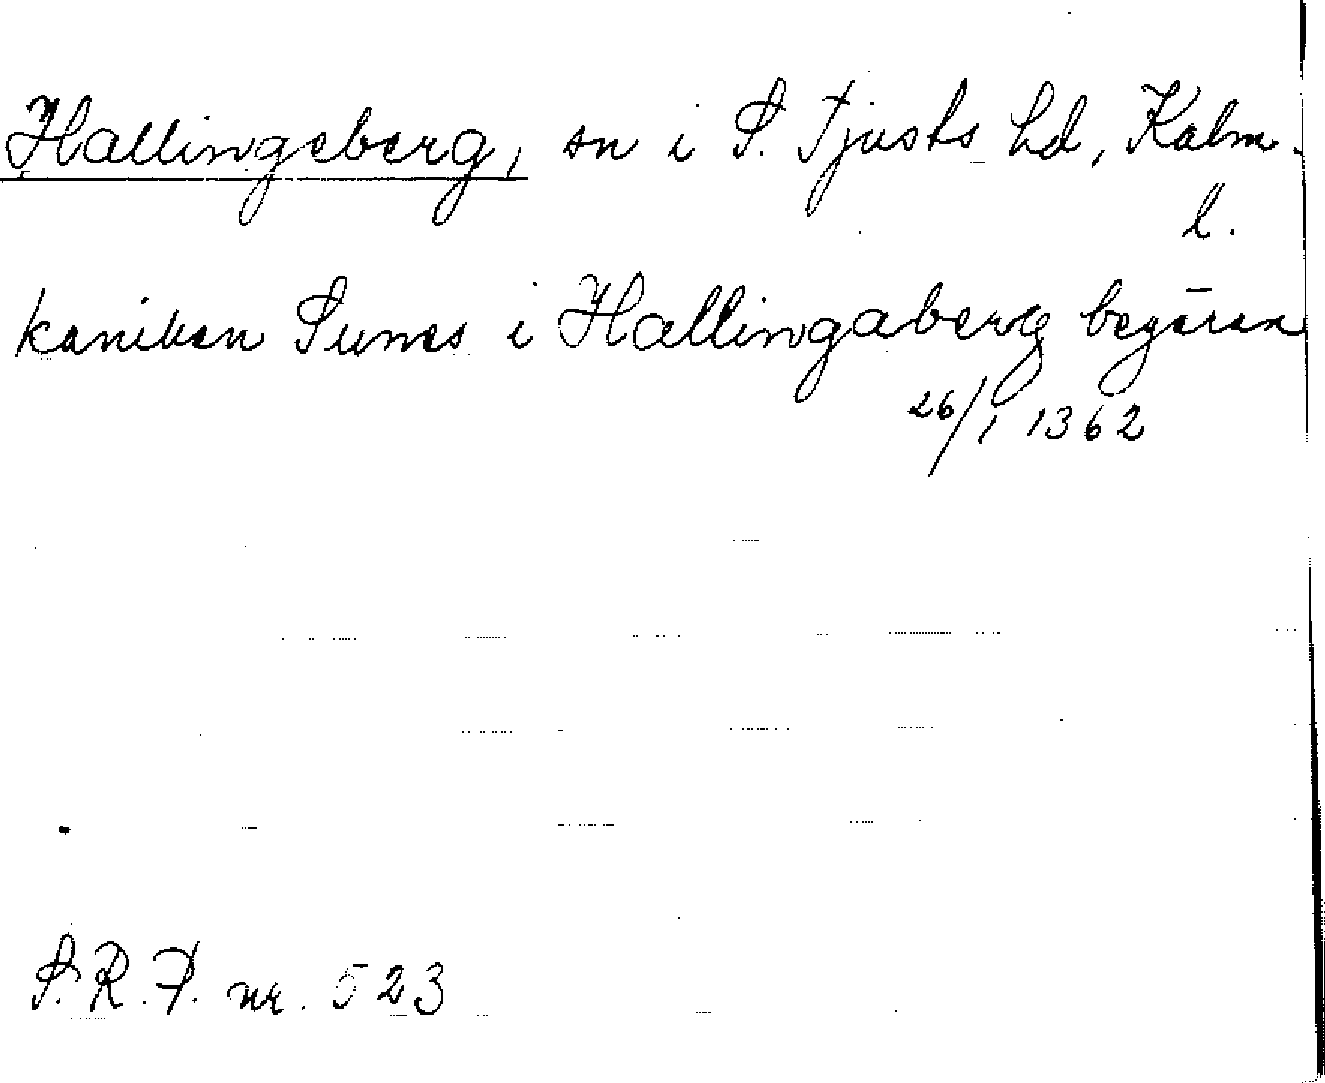 Hallingeberg, sn i S. Tjusts hd, Kalm.
l.
kaniken Sunes i Hallingaberg begäran
26/1 1362
S.R.P. nr. 523